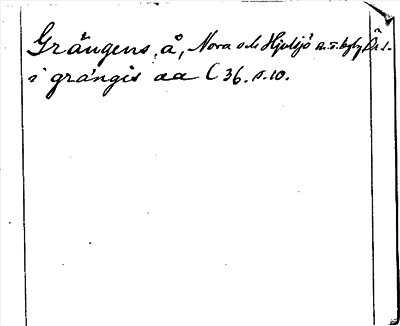 Grängens å, Nora o. Hjulsjö s:r. Ör. l.
i grángis aa C 36. s. 10.